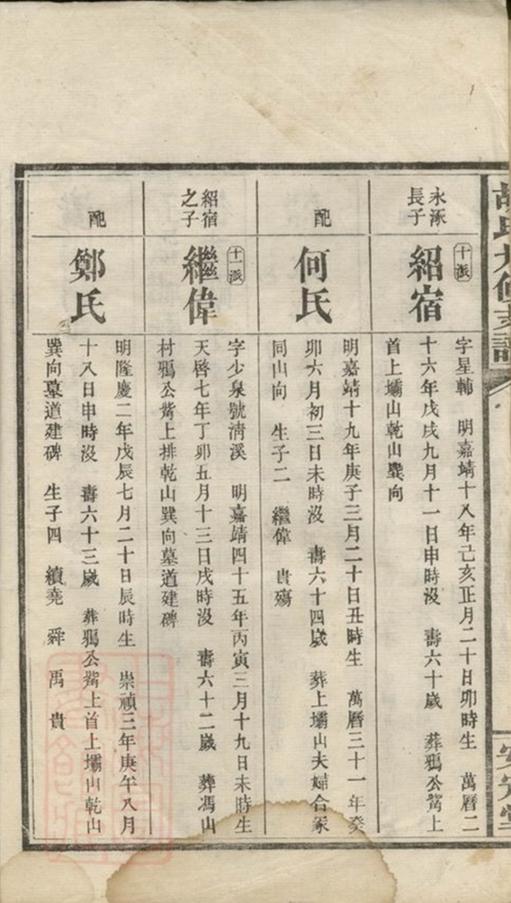 胡氏九修支譜
永添
長子
十派
紹宿
字星輔 明嘉靖十八年己亥正月二十日卯時生 萬曆二
十六年戊戌九月十一日申時沒 壽六十歲 葬鴉公嘴上
首上壩山乾山巽向
配
何氏
明嘉靖十九年庚子三月二十日丑時生 萬曆三十一年癸
卯六月初三日未時沒 壽六十四歲 葬上壩山夫婦合冢
同山向 生子二 繼偉 貴殤
紹宿
之子
十一派
繼偉
字少泉號淸溪 明嘉靖四十五年丙寅三月十九日未時生
天啓七年丁卯五月十三日戌時沒 壽六十二歲 葬馮山
村鴉公嘴上排乾山巽向墓道建碑
配
鄭氏
明隆慶二年戊辰七月二十日辰時生 崇禎三年庚午八月
十八日申時沒 壽六十三歲 葬鴉公嘴上首上壩山乾山
巽向墓道建碑 生子四 續堯 舜 禹 貴
安定堂